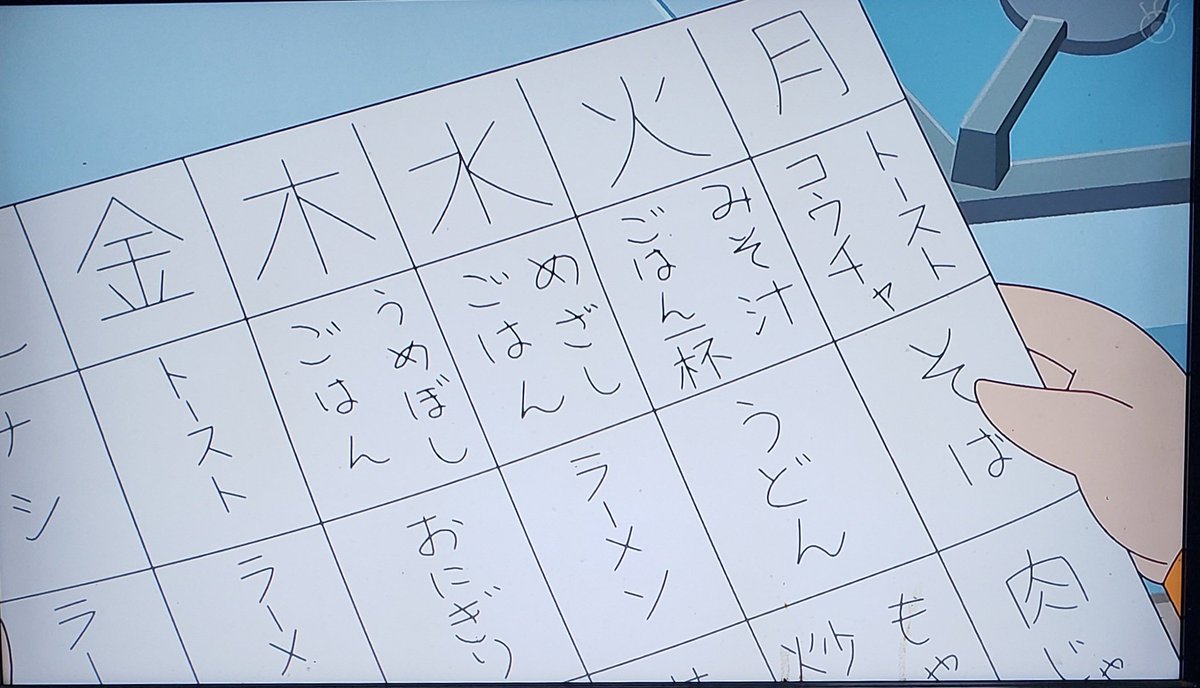 月
火
水
木
金
トースト
コウチャ
みそ汁
ごはん一杯
めざし
ごはん
うめぼし
ごはん
トースト
ナシ
そば
うどん
ラーメン
おにぎり
ラーメ
ラー
肉じゃ
もや
炒